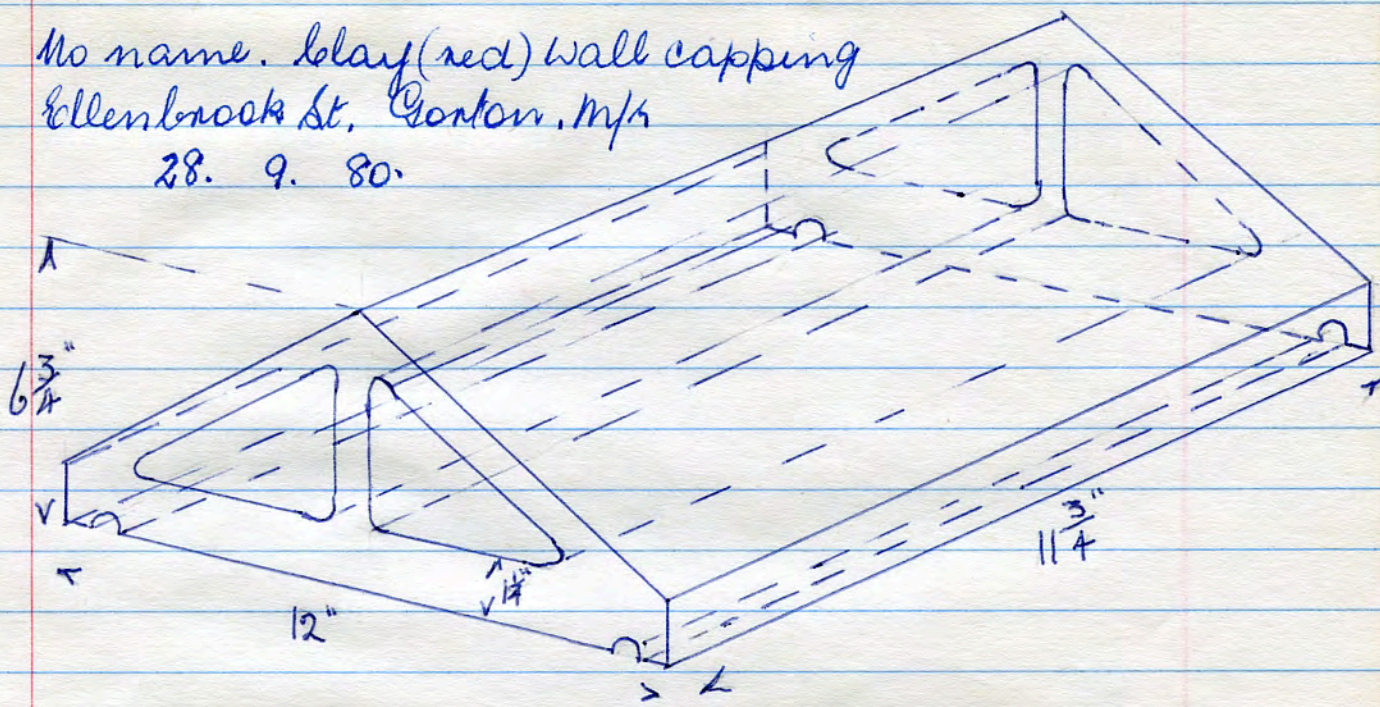 No name. Clay (red) wall capping
Ellenbrook St. Gorton. M/r
28. 9. 80.
6 3/4"
12"
1 1/4"
11 3/4"